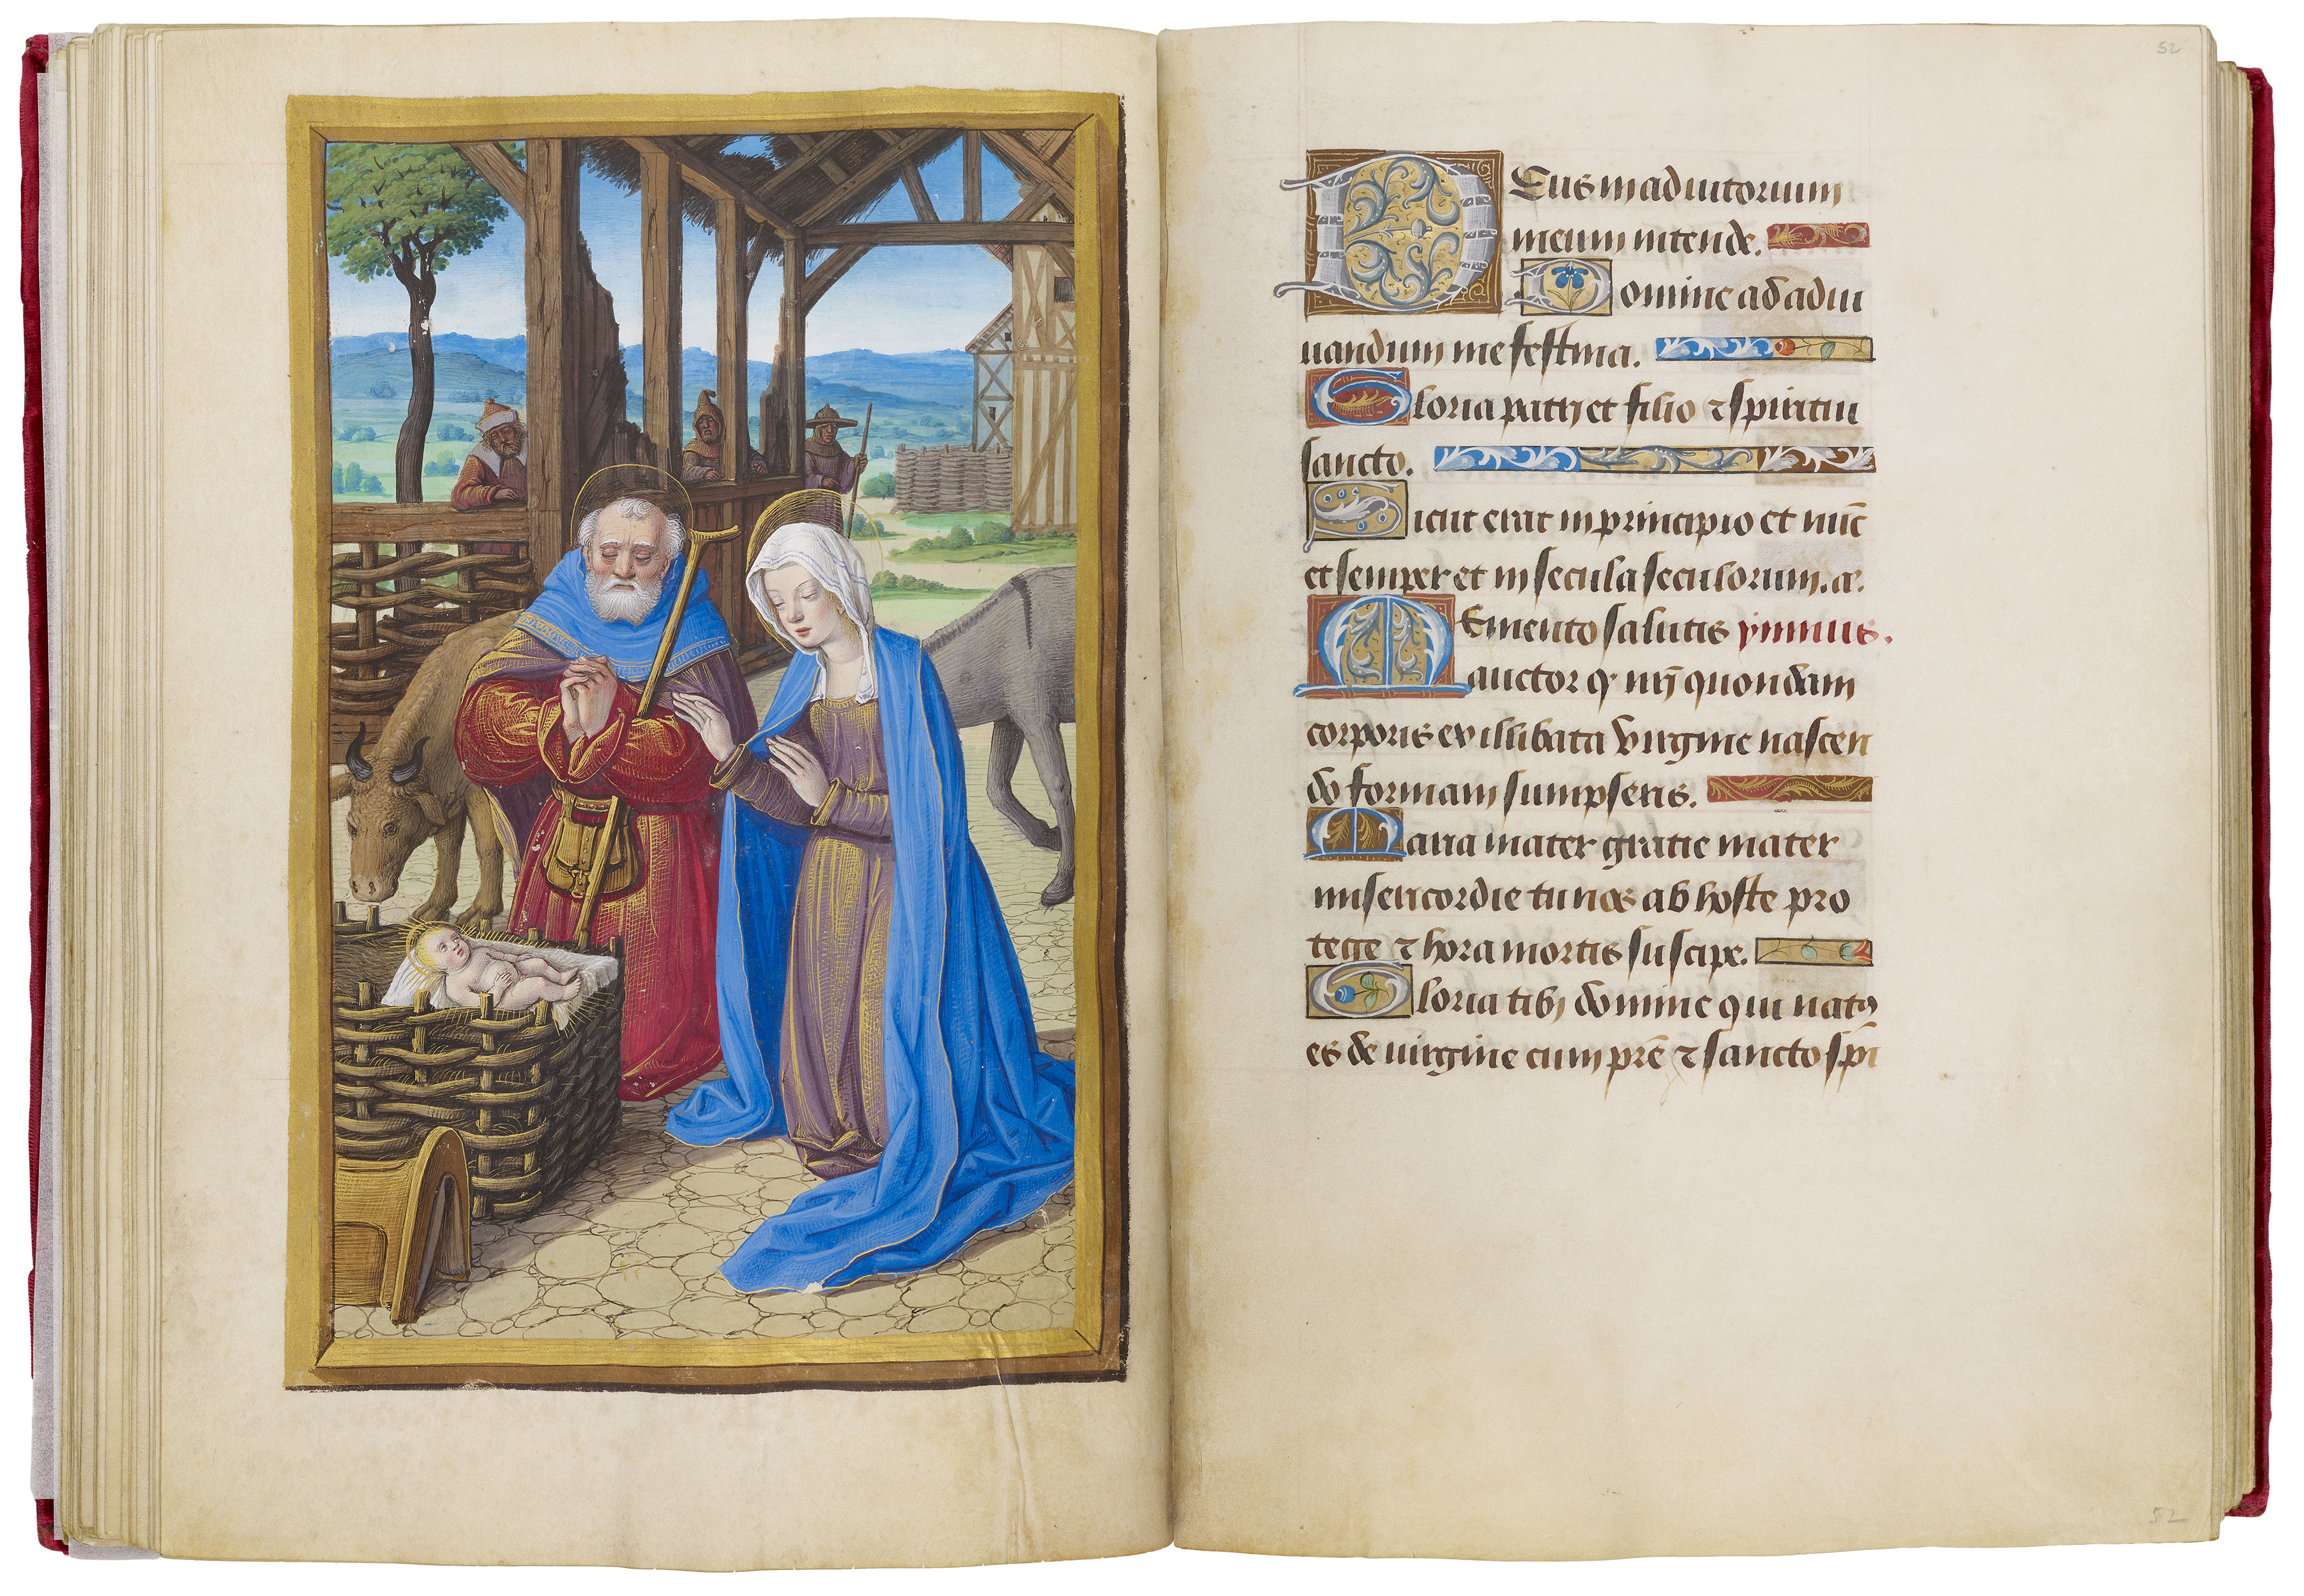 52
Deus in adiutorium
meum intende.
Domine ad adiu
uandum me festina.
Gloria patri et filio ⁊ spiritui
sancto.
Sicut erat in principio et nūc
et semper et in secula seculorum. a.
Memento salutis ymnus.
auctor q nr̄i quondam
corporis ex illibata virgine nascen
do formam sumpseris.
Maria mater gratie mater
misericordie tu nos ab hoste pro
tege ⁊ hora mortis suscipe.
Gloria tibi domine qui natꝰ
es de uirgine cum pr̄e ⁊ sancto sp̄i
52